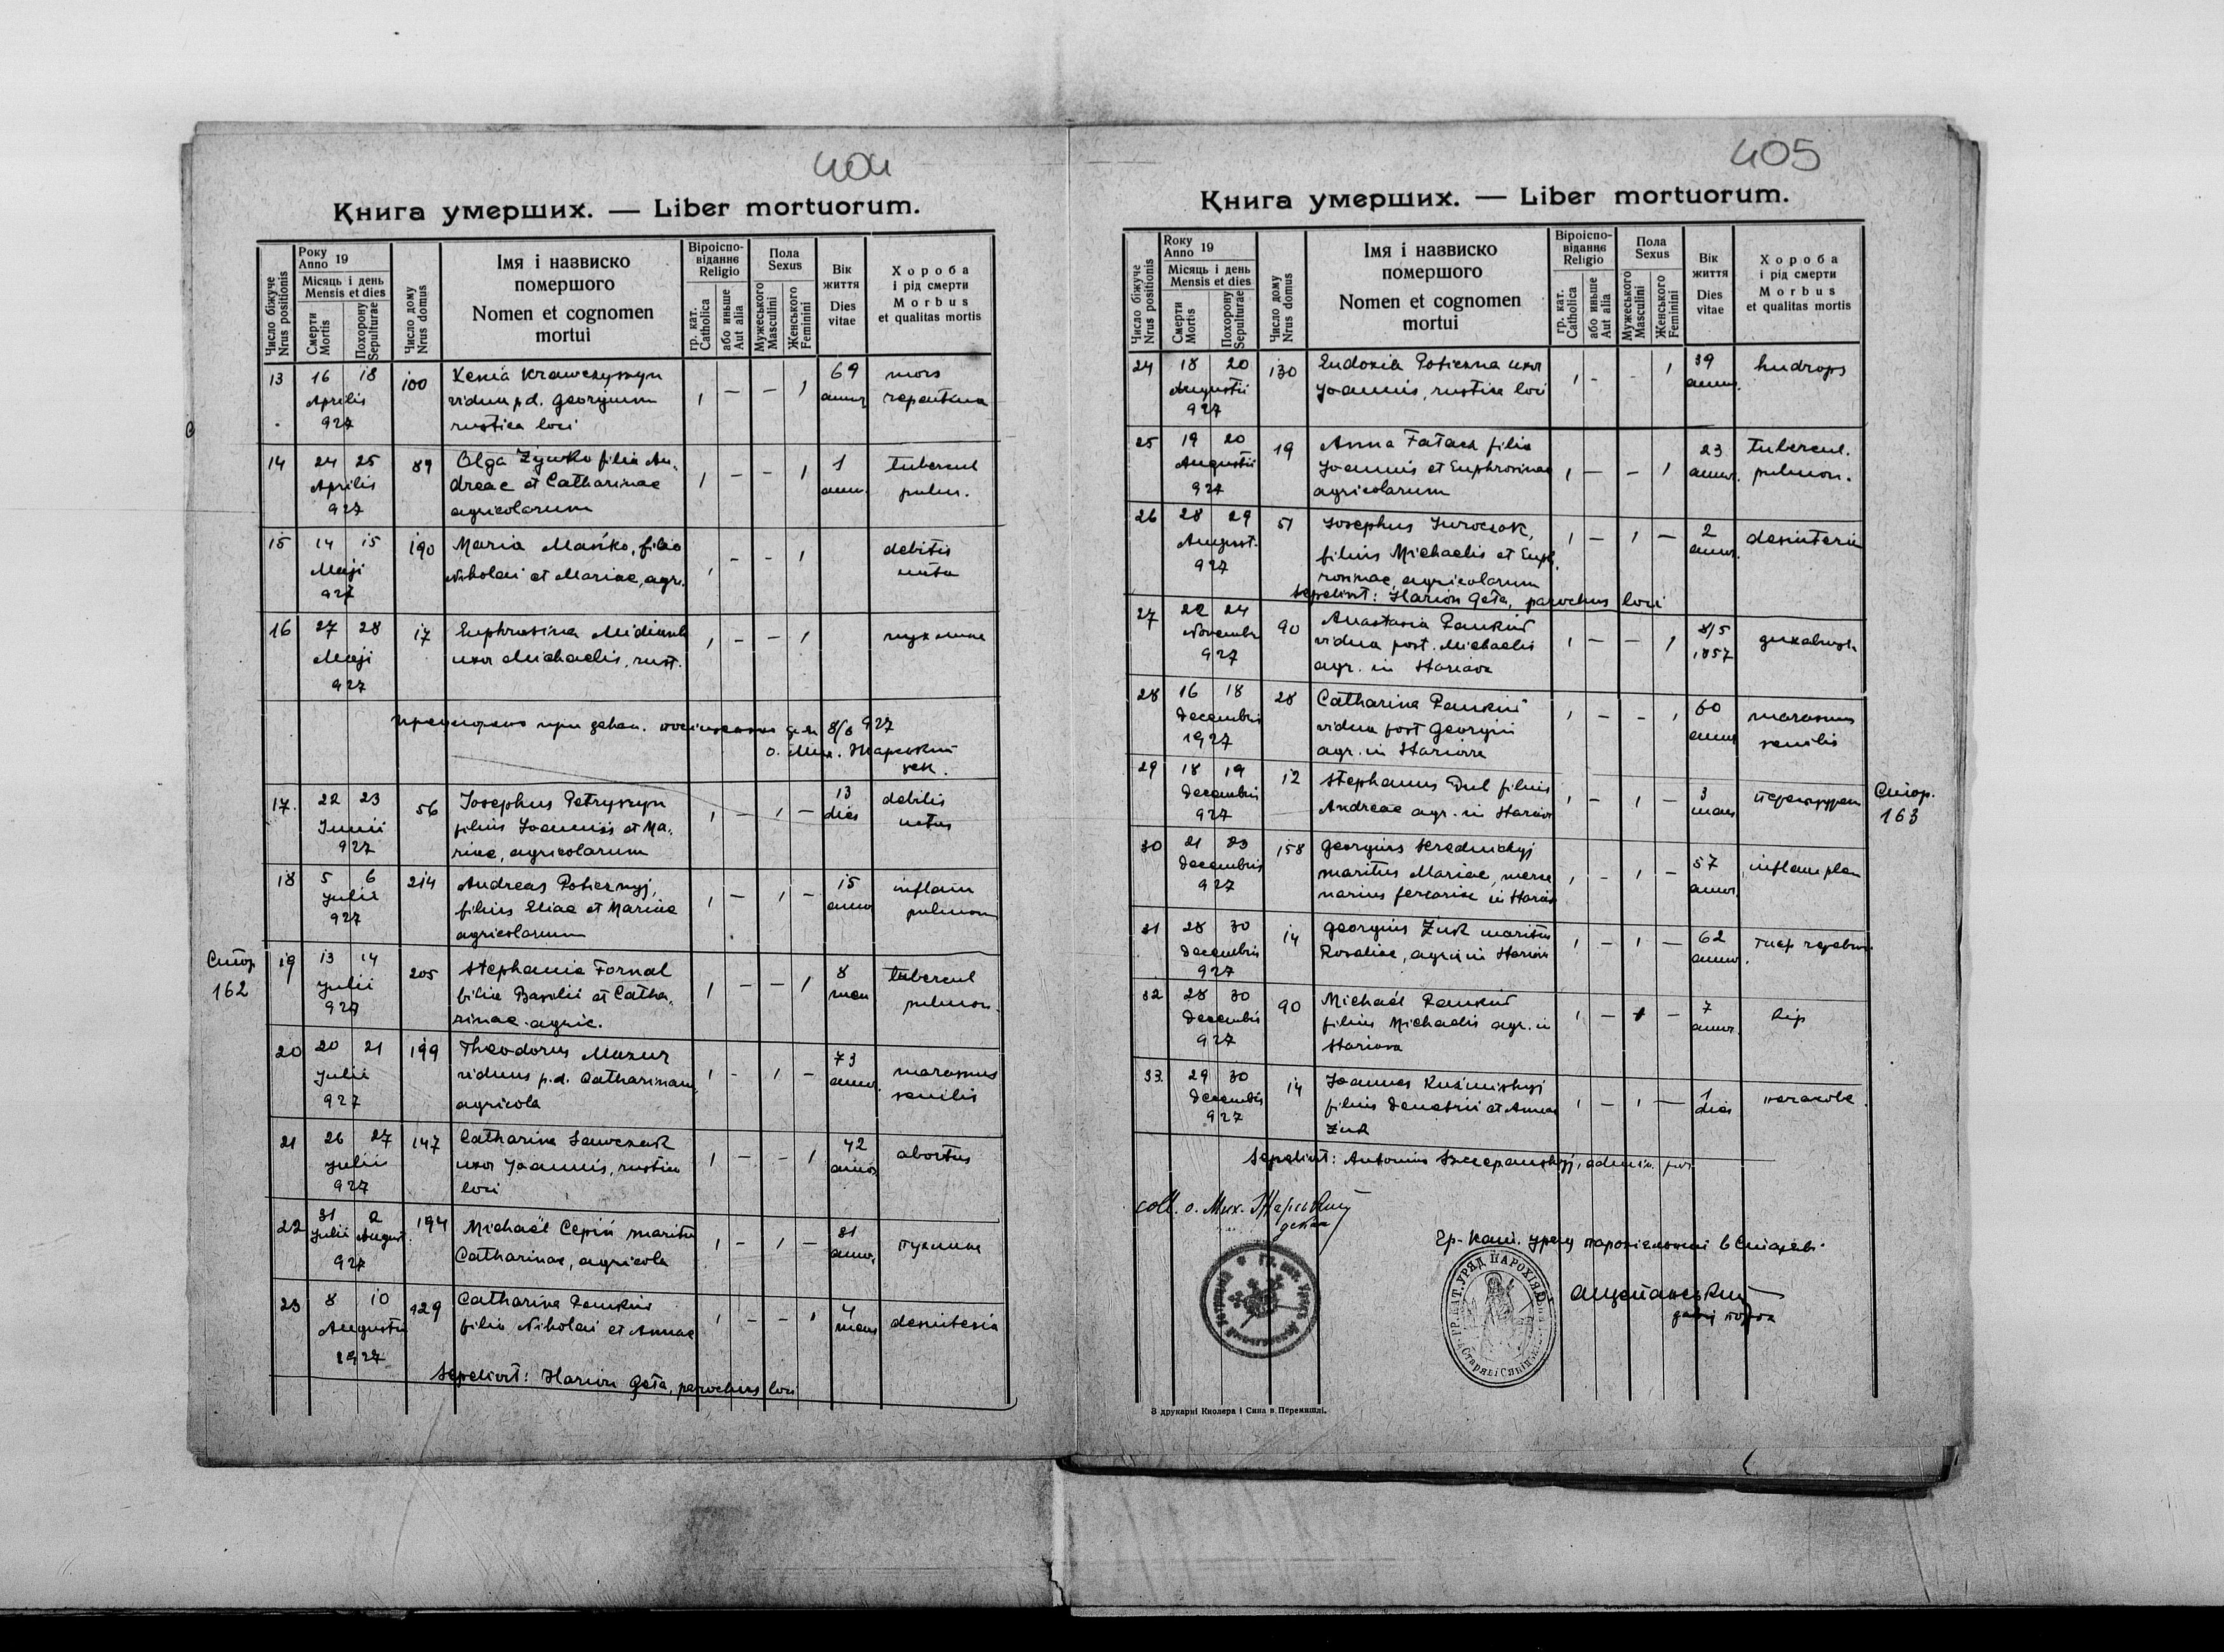 404
Книга умерших. — Liber mortuorum.
Число біжуче
Nrus positionis
Року
Anno 19
Місяць і день
Mensis et dies
Смерти
Mortis
Похорону
Sepulturae
Число дому
Nrus domus
Імя і назвиско
померш­ого
Nomen et cognomen
mortui
Віроіспо-
віданнє
Religio
гр. кат.
Catholica
або иньше
Aut alia
Пола
Sexus
Мужеського
Masculini
Женського
Feminini
Вік
життя
Dies
vitae
Хороба
і рід смерти
Morbus
et qualitas mortis
13 16 18 100 Xenia Krawczyszyn 1 — — 1 69 mors
Aprilis vidua p.d. Georgium annor repentina
927 rustica loci
14 24 25 89 Olga Żywko filia An- 1 — — 1 1 tubercul
Aprilis dreae et Catharinae ann. pulm.
927 agricolarum
15 14 15 190 Maria Mańko, filia 1 — — 1 debilis
Maji Nikolai et Mariae, agr. nata
927
16 27 28 17 Euphrosina 1 — — 1
Maji uxor Michaelis, rust.
927
8/6 927
17. 22 23 56 Josephus Petryszyn 1 — 1 — 13 debilis
Junii filius Joannis et Ma- dies natus
927 riae, agricolarum
18 5 6 214 Andreas Potiernyj, 1 — 1 — 15 inflam
Julii filius Eliae et Mariae annor pulmon
927 agricolarum
Стор.
162
19 13 14 205 Stephania Fornal 1 — — 1 8 tubercul
Julii filia Basilii et Catha- men pulmon.
927 rinae agric.
20 20 21 199 Theodorus Mazur 1 — 1 — 73 marasmus
Julii viduus p.d. Catharinam, annor. senilis
927 agricola
21 26 27 147 Catharina Sawczak 1 — — 1 42 abortus
Julii uxor Joannis, rustica annor.
927 loci
22 31 2 194 Michaël Cepiń maritus 1 — 1 — 31 пухлина
Julii August. Catharinae, agricola annor.
927
23 8 10 129 Catharina Pańkiw 1 — — 1 4 desinteria
Augusti filia Nikolai et Annae mens
1927
Sepelivit: Ilarion Geła, parochus loci
405
Книга умерших. — Liber mortuorum.
Число біжуче
Nrus positionis
Року
Anno 19
Місяць і день
Mensis et dies
Смерти
Mortis
Похорону
Sepulturae
Число дому
Nrus domus
Імя і назвиско
померш­ого
Nomen et cognomen
mortui
Віроіспо-
віданнє
Religio
гр. кат.
Catholica
або иньше
Aut alia
Пола
Sexus
Мужеського
Masculini
Женського
Feminini
Вік
життя
Dies
vitae
Хороба
і рід смерти
Morbus
et qualitas mortis
24 18 20 130 Eudoxia Potierna uxor 1 - - 1 39 hudrops
Augustii Joannis, rustica loci annor.
927
25 19 20 19 Anna Fatacz filia 1 — — 1 23 tubercul.
Augustii Joannis et Euphrosinae annor. pulmon.
927 agricolarum
26 28 29 51 Josephus Jurczak, 1 — 1 — 2 desinteria
August. filius Michaelis et Euph- annor.
927 rosinae, agricolarum
Sepelivit: Ilarion Geła, parochus loci
27 22 24 90 Anastasia Pańkiw 1 — — 1 8/5
Novembr vidua post. Michaelis 1857
927 agr. in Stariava
28 16 18 28 Catharina Pańkiw 1 — — 1 60 marasmus
Decembris vidua post Georgii annor senilis
1927 agr. in Stariava
29 18 19 12 Stephanus Dul filius 1 — 1 — 3
Decembris Andreae agr. in Stariava mens
927
Стор.
163
30 21 23 158 Georgius Serednickyj 1 — 1 — 57
Decembris maritus Mariae, merce- annor.
927 narius in Stariava
31 28 30 14 Georgius Żuk maritus 1 — 1 — 62
Decembris Rosaliae, agr. in Stariava annor.
927
32 28 30 90 Michaël Pańkiw 1 — 1 — 7
Decembris filius Michaelis agr. in annor.
927 Stariava
33. 29 30 14 Joannes Kuśmirskyj 1 — 1 — 1
Decembris filius Demetrii et Annae dies
927 Żuk
Sepelivit: Antonius Szczepanskyj, admin. par.
coll. о. Мих.
декан
Гр.-кат. уряд парохіяльний в Стаяві
З друкарні Кнолера і Сина в Перемишлі.